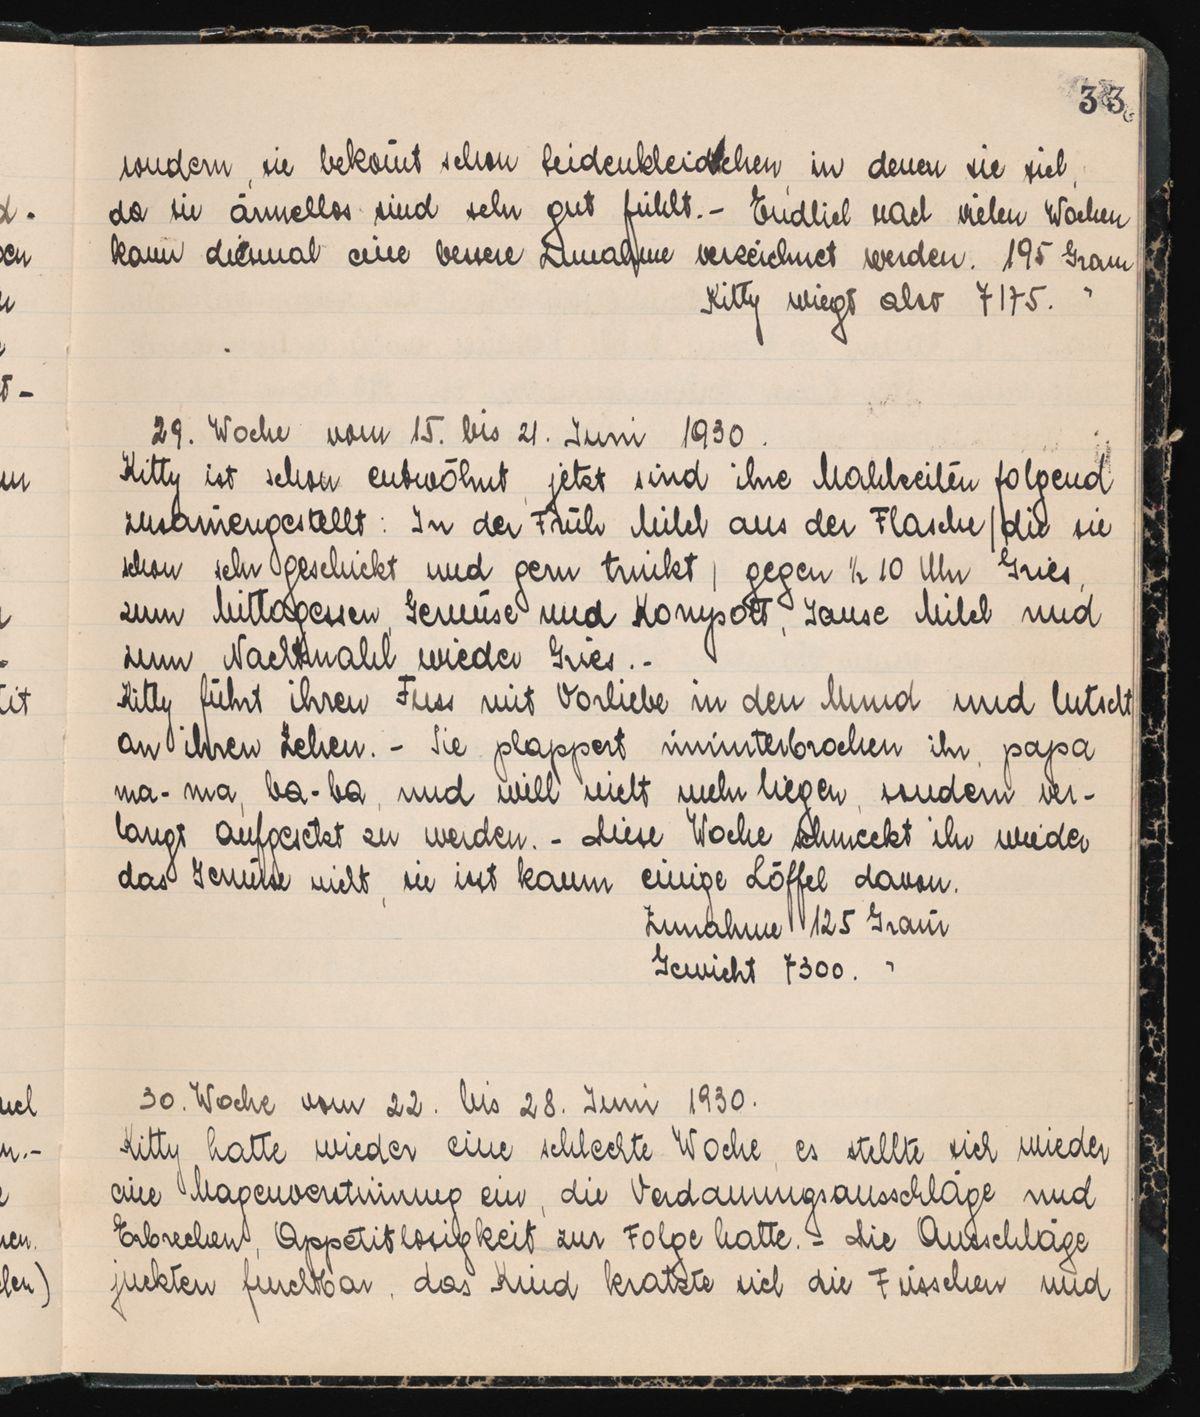 33
sondern, sie bekom̄t schon Seidenkleidchen, in denen sie sich,
da sie ärmellos sind sehr gut fühlt. – Endlich nach vielen Wochen
kann diesmal eine bessere Zunahme verzeichnet werden. 195 Gram
Kitty wiegt also 7175. "
29. Woche vom 15. bis 21. Juni 1930.
Kitty ist schon entwöhnt, jetzt sind ihre Mahlzeiten folgend
zusam̄engestellt: In der Früh Milch aus der Flasche / die sie
schon sehr geschickt und gern trinkt / gegen ½ 10 Uhr Gries,
zum Mittagessen, Gemüse und Kompott, Jause Milch und
zum Nachtmahl wieder Gries. –
Kitty führt ihren Fuss mit Vorliebe in den Mund und lutscht
an ihren Zehen. – Sie plappert ununterbrochen ihr, papa
ma-ma, ba-ba, und will nicht mehr liegen, sondern ver-
langt aufgesetzt zu werden. – Diese Woche schmeckt ihr wieder
das Gemüse nicht, sie isst kaum einige Löffel davon.
Zunahme 125 Gram̄
Gewicht 7300. "
30. Woche vom 22. bis 28. Juni 1930.
Kitty hatte wieder eine schlechte Woche, es stellte sich wieder
eine Magenverstim̄ung ein, die Verdauungsausschläge und
Erbrechen, Appetitlosigkeit zur Folge hatte. – Die Ausschläge
juckten furchtbar, das Kind kratzte sich die Füsschen und